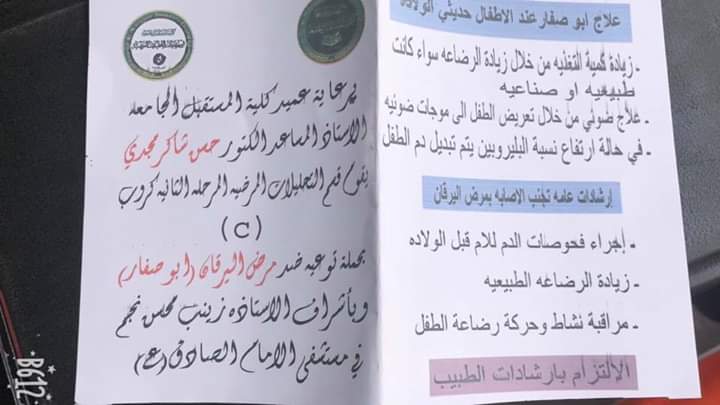 علاج ابو صفار عند الاطفال حديثي الولاده
- زيادة كمية التغذيه من خلال زيادة الرضاعه سواء كانت
طبيعيه او صناعيه
- علاج ضوئي من خلال تعريض الطفل الى موجات ضوئيه
- في حالة ارتفاع نسبة البليروبين يتم تبديل دم الطفل
إرشادات عامه تجنب الاصابه بمرض اليرقان
- إجراء فحوصات الدم للام قبل الولاده
- زيادة الرضاعه الطبيعيه
- مراقبة نشاط وحركة رضاعة الطفل
الالتزام بارشادات الطبيب
برعاية عميد كلية المستقبل الجامعه
الاستاذ المساعد الدكتور حسن شاكر مجدي
يقوم قسم التحليلات المرضيه المرحله الثانيه كروب
(C)
بحملة توعيه ضد مرض اليرقان (ابو صفار)
وبأشراف الاستاذه زينب محسن نجم
في مستشفى الامام الصادق (ع)
B612